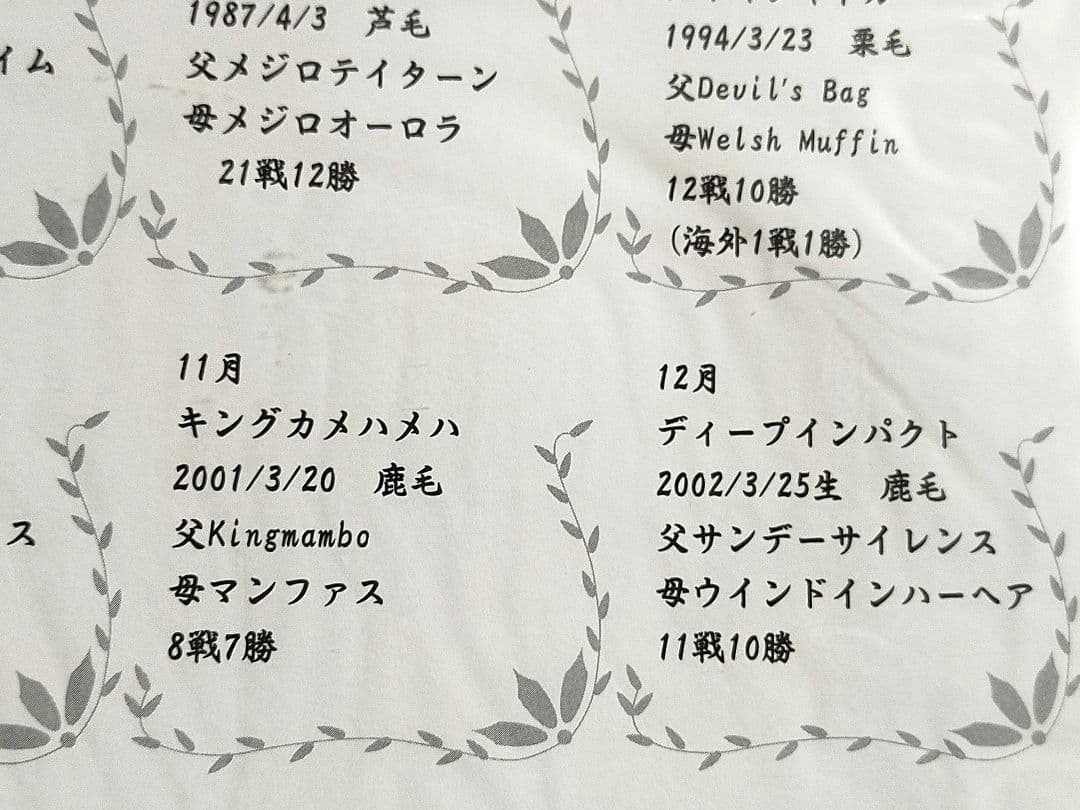 イム
1987/4/3 芦毛
父メジロテイターン
母メジロオーロラ
21戦12勝
1994/3/23 栗毛
父Devil's Bag
母Welsh Muffin
12戦10勝
(海外1戦1勝)
ス
11月
キングカメハメハ
2001/3/20 鹿毛
父Kingmambo
母マンファス
8戦7勝
12月
ディープインパクト
2002/3/25生 鹿毛
父サンデーサイレンス
母ウインドインハーヘア
11戦10勝